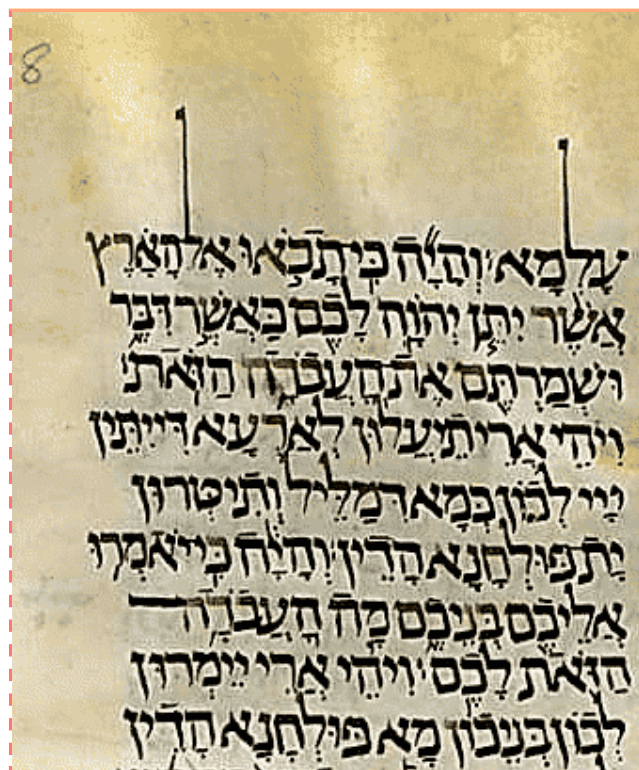 8
עָלְמָא׃ וְהָיָה כִּי תָבֹאוּ אֶל הָאָרֶץ
אֲשֶׁר יִתֵּן יְהוָה לָכֶם כַּאֲשֶׁר דִּבֵּר
וּשְׁמַרְתֶּם אֶת הָעֲבֹדָה הַזֹּאת׃
וִיהֵי אֲרֵי תֵיעֲלוּן לְאַרְעָא דְּיִיתֵּין
יְיָי לְכוֹן כְּמָא דְמַלֵּיל וְתִיטְּרוּן
יָת פּוּלְחָנָא הָדֵין׃ וְהָיָה כִּי יֹאמְרוּ
אֲלֵיכֶם בְּנֵיכֶם מָה הָעֲבֹדָה
הַזֹּאת לָכֶם׃ וִיהֵי אֲרֵי יֵימְרוּן
לְכוֹן בְּנֵיכוֹן מָא פּוּלְחָנָא הָדֵין